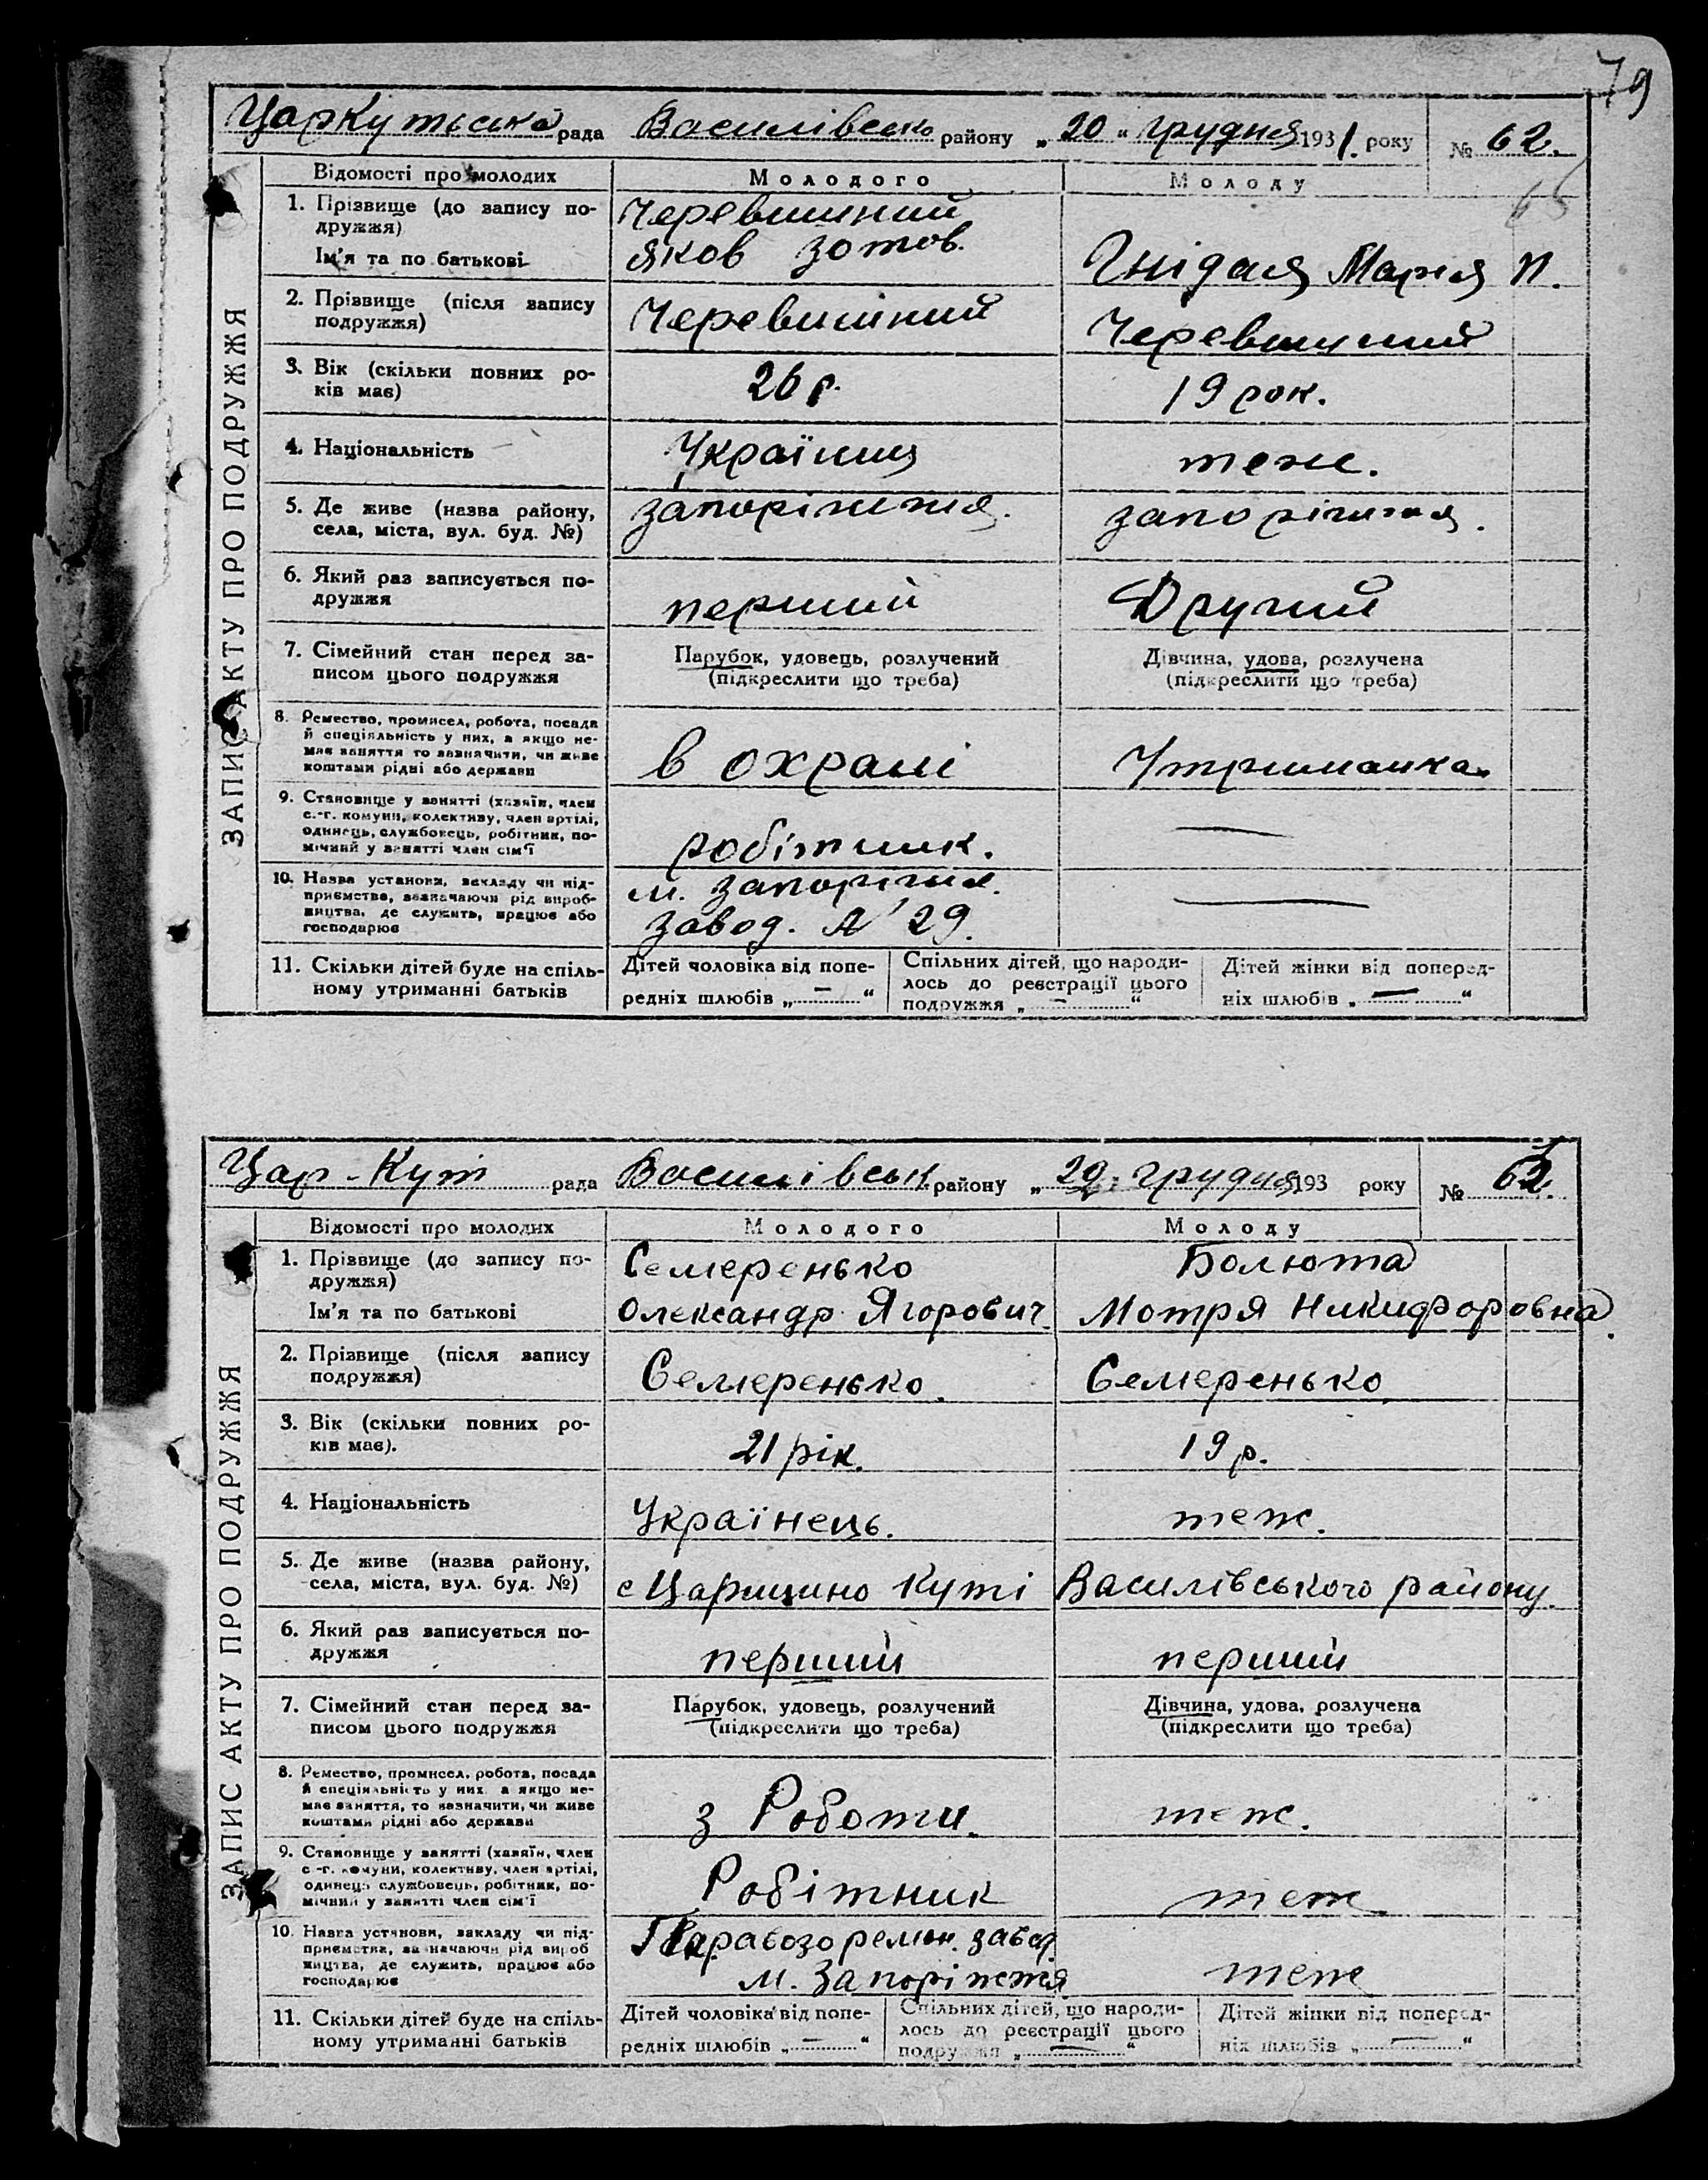 79
ЦарКутська рада Василівсько району „ 20 “ грудня 1931. року № 62.
65
Відомості про молодих Молодого Молоду
ЗАПИС АКТУ ПРО ПОДРУЖЖЯ
1. Прізвище (до запису по-
дружжя)
Ім'я та по батькові
Черевишний
Яков Зотов.
Гнідая Мария П.
2. Прізвище (після запису
подружжя)
Черевишний
Черевишний
3. Вік (скільки повних ро-
ків має)
26 р.
19 рок.
4. Національність
Українця
теж.
5. Де живе (назва району,
села, міста, вул. буд. №)
Запоріжжя.
Запоріжжя.
6. Який раз записується по-
дружжя
перший
Другий
7. Сімейний стан перед за-
писом цього подружжя
Парубок, удовець, розлучений
(підкреслити що треба)
Дівчина, удова, розлучена
(підкреслити що треба)
8. Ремество, промисел, робота, посада
й спеціяльність у них, а якщо не-
має заняття то зазначити, чи живе
коштами рідні або держави
в охрані
Утриманка
9. Становище у занятті (хазяїн, член
с.-г. комуни, колективу, член артілі,
одинець, службовець, робітник, по-
мічний у занятті член сім'ї
робітник.
10. Назва установи, закладу чи під-
приємства, зазначаючи рід вироб-
ництва, де служить, працює або
господарює
м. Запоріжжя.
завод. № 29.
11. Скільки дітей буде на спіль-
ному утриманні батьків
Дітей чоловіка від попе-
редніх шлюбів „ — “
Спільних дітей, що народи-
лось до реєстрації цього
подружжя „ — “
Дітей жінки від поперед-
ніх шлюбів „ — “
Цар-Кут рада Василівськ. району „ 29. грудня 193 року №
Відомості про молодих Молодого Молоду
ЗАПИС АКТУ ПРО ПОДРУЖЖЯ
1. Прізвище (до запису по-
дружжя)
Ім'я та по батькові
Семеренько
Олександр Ягорович.
Болюта
Мотря Никифоровна.
2. Прізвище (після запису
подружжя)
Семеренько.
Семеренько
3. Вік (скільки повних ро-
ків має).
21 рік.
19 р.
4. Національність
Українець.
теж.
5. Де живе (назва району,
села, міста, вул. буд. №)
с Царицино Куті Василівського району.
6. Який раз записується по-
дружжя
перший
перший
7. Сімейний стан перед за-
писом цього подружжя
Парубок, удовець, розлучений
(підкреслити що треба)
Дівчина, удова, розлучена
(підкреслити що треба)
8. Ремество, промисел, робота, посада
й спеціяльність у них, а якщо не-
має заняття, то зазначити, чи живе
коштами рідні або держави
з Роботи.
теж.
9. Становище у занятті (хазяїн, член
с.-г. комуни, колективу, член артілі,
одинець службовець, робітник, по-
мічний у занятті член сім'ї
Робітник
теж
10. Назва установи, закладу чи під-
приємства, зазначаючи рід вироб
ництва, де служить, працює або
господарює
Паравозоремон. завод.
м. Запоріжжя
теж
11. Скільки дітей буде на спіль-
ному утриманні батьків
Дітей чоловіка від попе-
редніх шлюбів „ — “
Спільних дітей, що народи-
лось до реєстрації цього
подружжя „ — “
Дітей жінки від поперед-
ніх шлюбів „ — “